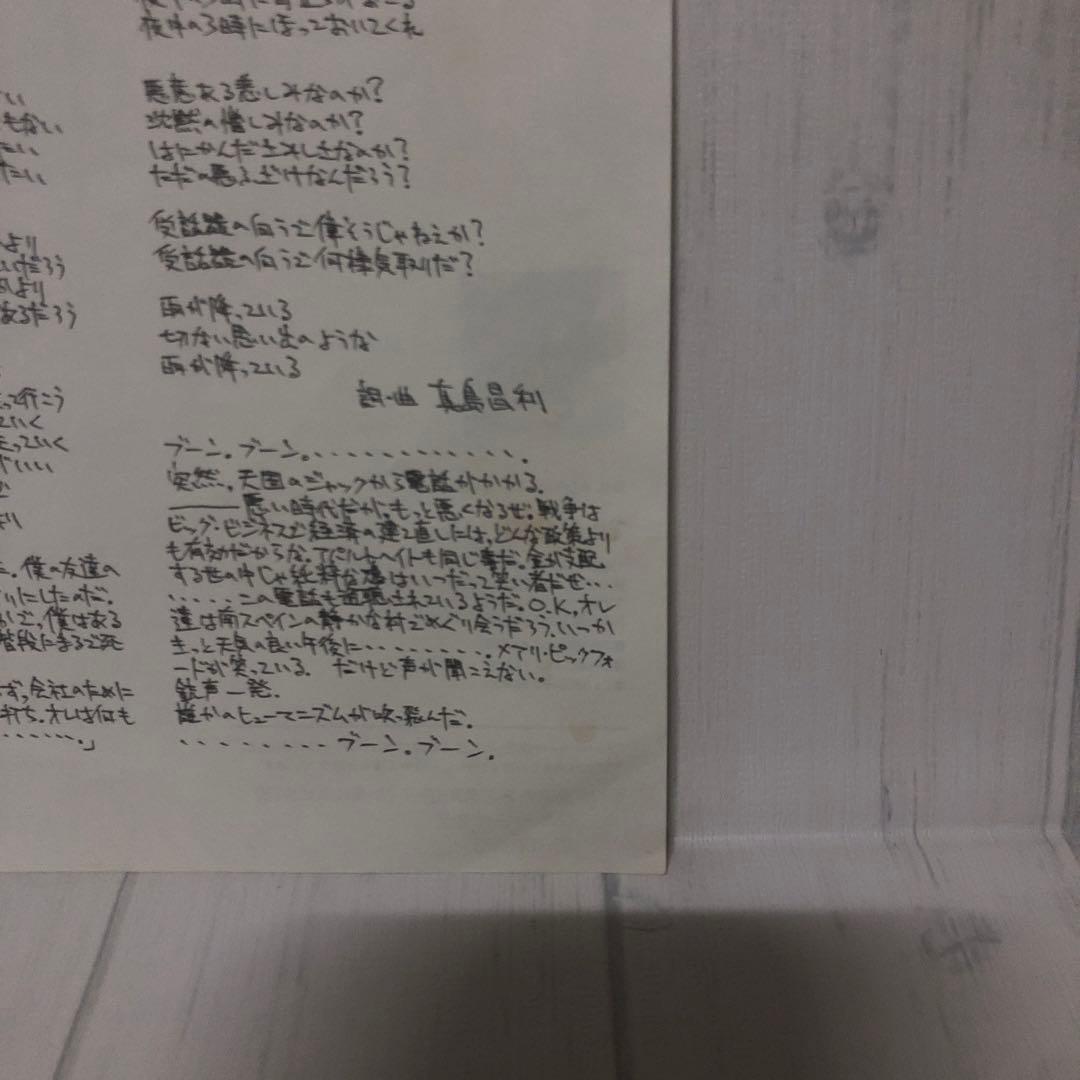 夜中の3時にほっておいてくれ
悪意ある悲しみなのか?
沈黙の憎しみなのか?
はにかんだ
ただの悪ふざけなんだろう?
受話器の向うで偉そうじゃねえか?
受話器の向うで何様気取りだ?
雨が降っている
切ない思い出のような
雨が降っている
詞・曲 真島昌利
ブーン。ブーン。・・・・・・・・・・・・・
突然、天国のジャックから電話がかかる。
――悪い時代だが、もっと悪くなるぜ。戦争は
ビッグ・ビジネスで経済の建て直しには、どんな政策より
も有効だからな。アパルトヘイトも同じ事だ。金が支配
する世の中じゃ純粋な魂はいつだって笑い者だぜ・・・
・・・・・この電話も盗聴されているようだ。O.K.オレ
達は南スペインの静かな村でめぐり会うだろう。いつか
きっと天気の良い午後に・・・・・・・・。メアリ・ピックフォ
ードが笑っている。だけど声が聞こえない。
銃声一発。
誰かのヒューマニズムが吹っ飛んだ。
・・・・・・・・・ブーン。ブーン。
もない
たい
より
だろう
より
あるだろう
って行こう
ていく
っていく
がいい
た。僕の友達の
りにしたのだ。
で、僕はある
階段にまるで死
ず、会社のために
打ち。オレは何も
・・・・・・。」